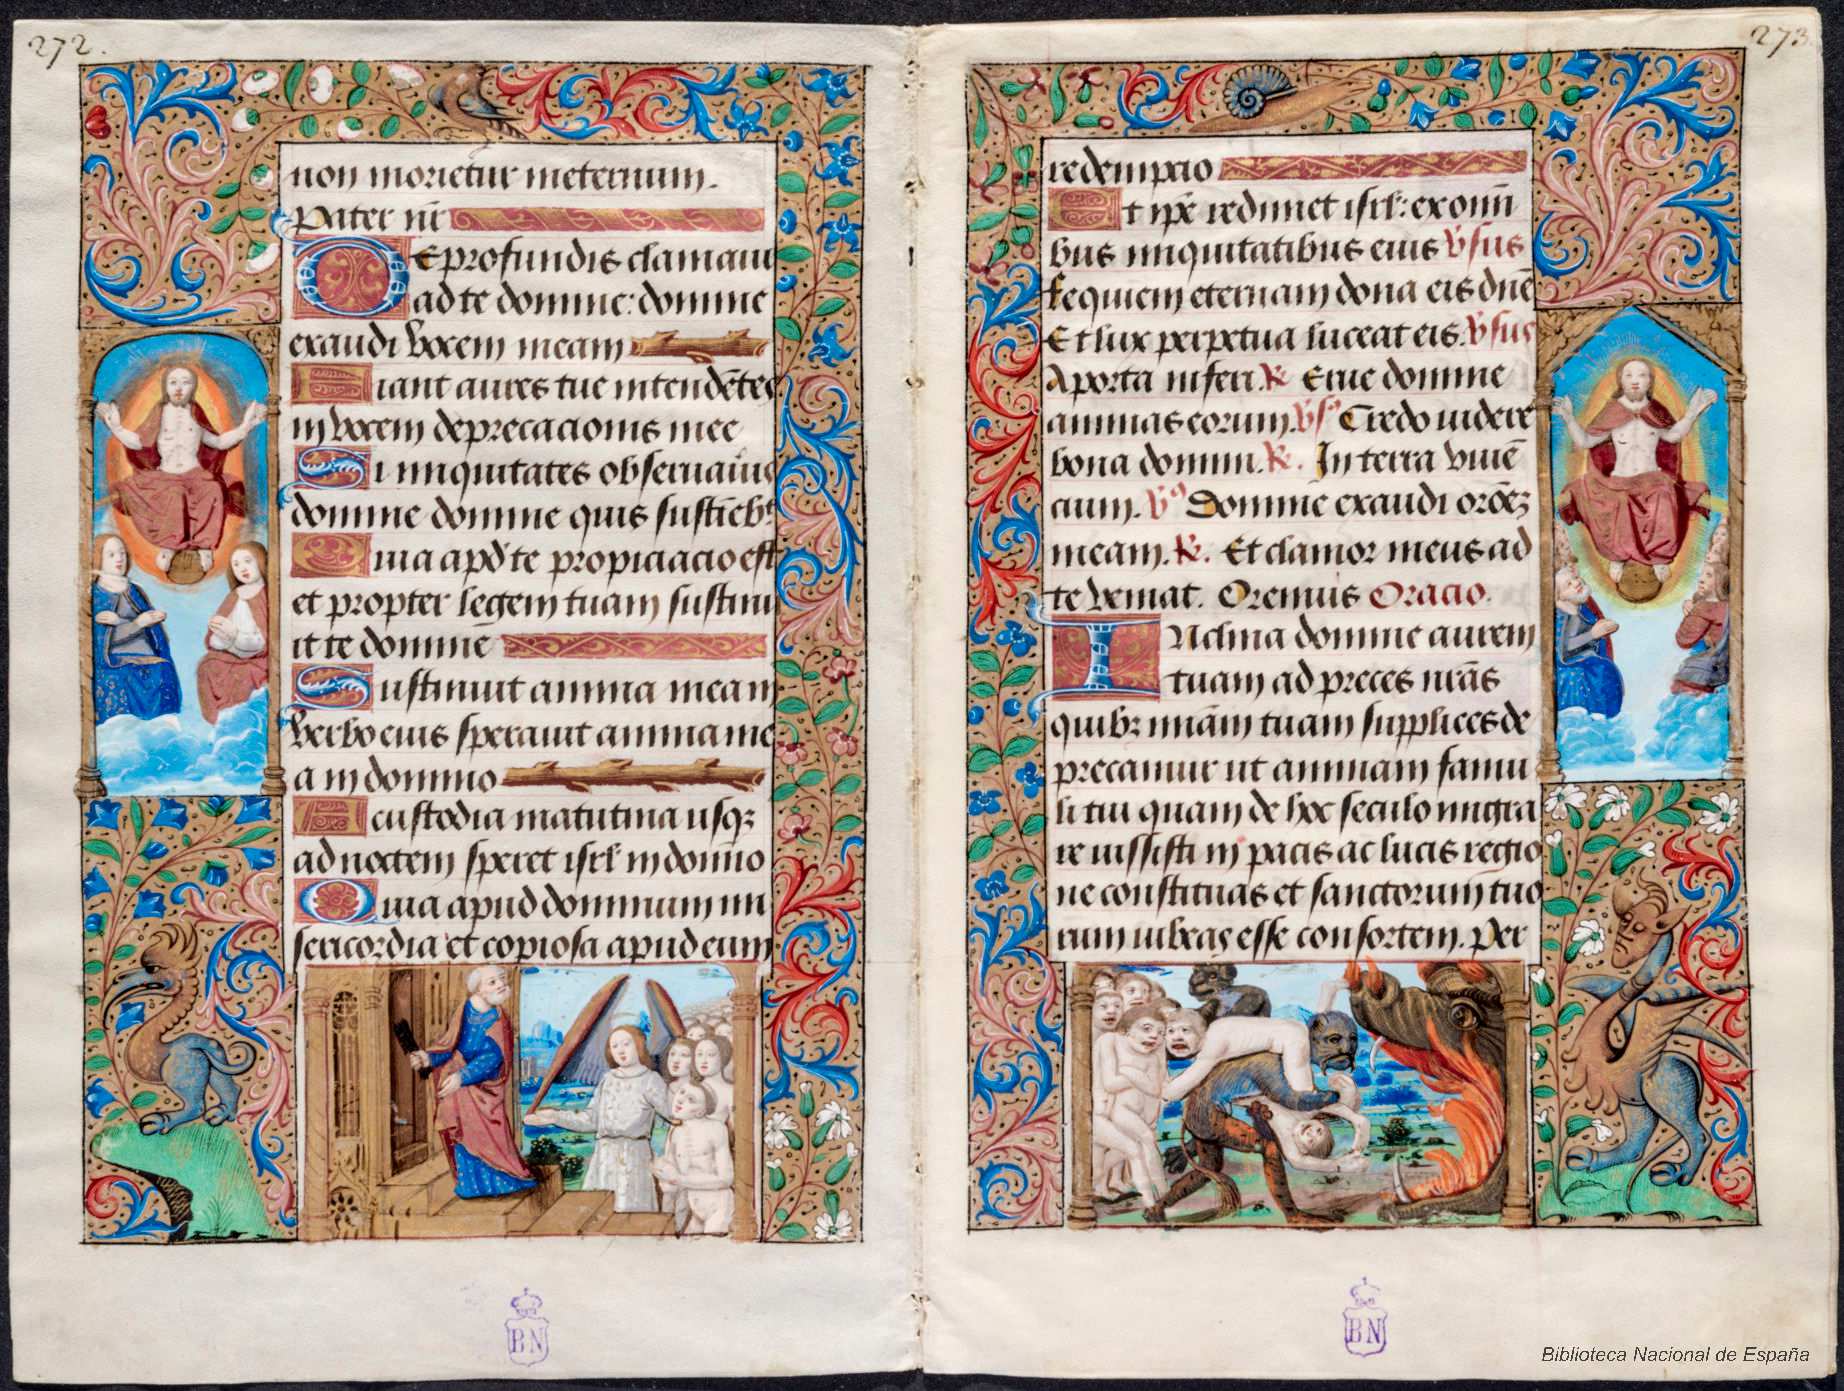 272.
non morietur ineternum.
Pater nr̄
De profundis clamaui
ad te domine: domine
exaudi vocem meam
Fiant aures tue intendētes
in vocem deprecacionis mee
Si iniquitates obseruaūis
domine domine quis sustīeb᷑
Quia apd̄ te propiciacio est
et propter legem tuam sustinu
it te dominē
Sustinuit anima mea in
verbo eius sperauit anima me
a in domino
A custodia matutina usqꝫ
ad noctem speret isrl̄ in domīo
Quia apud dominum mi
sericordia et copiosa apud eum
BN
273.
redempcio
Et ip̄e redimet isrl̄: ex omī
bus iniquitatibus eius v̄sus
Requiem eternam dona eis dn̄e
Et lux perpetua luceat eis. v̄sus
A porta inferi. ℟ Erue domine
animas eorum. v̄s᷒ Credo uidere
bona domini. ℟. In terra viuē
cium. v᷒ Domine exaudi orōeꝫ
meam. ℟. Et clamor meus ad
te veniat. Oremus Oracio.
INclina domine aurem
tuam ad preces nr̄as
quibꝫ miām tuam supplices de
precamur ut animam famu
li tui quam de hoc seculo migra
re iussisti in pacis ac lucis regio
ne constituas et sanctorum tuo
rum iubeas esse consortem. Per
BN
Biblioteca Nacional de España